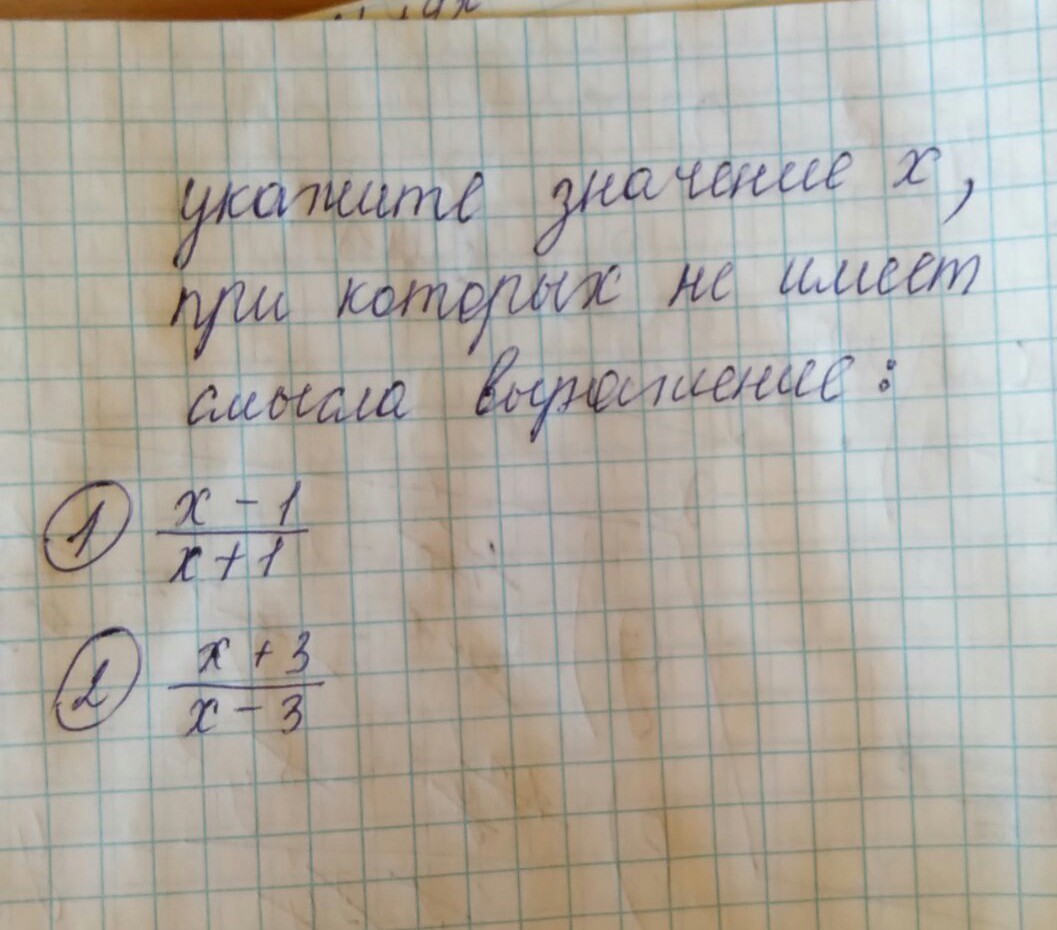 укажите значение х,
при которых не имеет
смысла выражение:
① x - 1
x + 1
② x + 3
x - 3